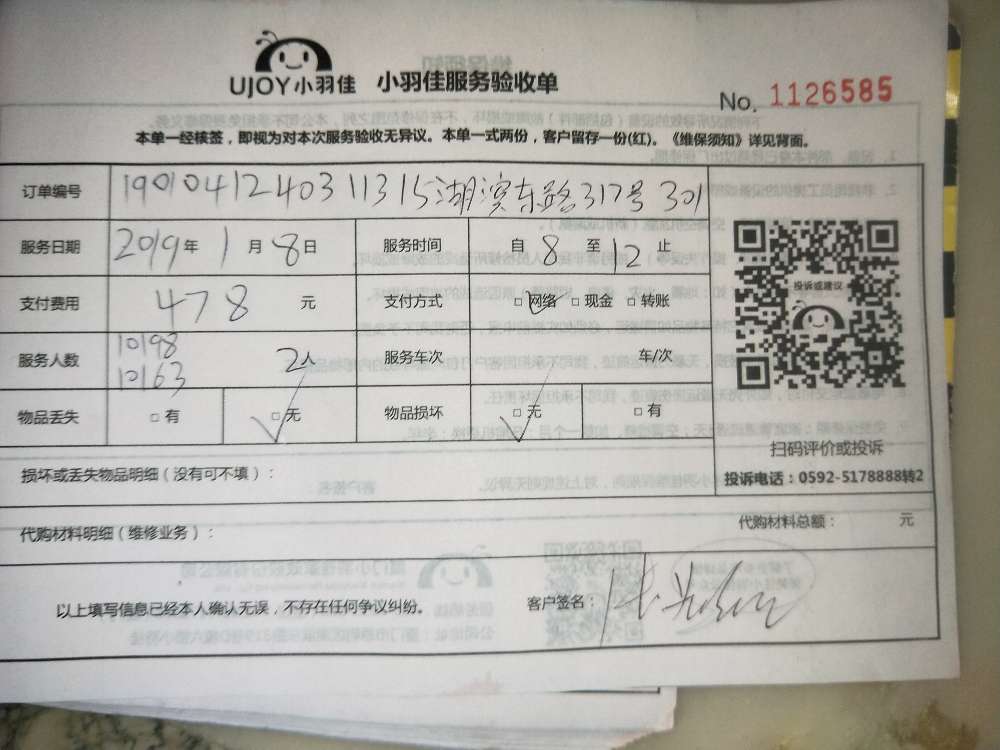 UJOY小羽佳 小羽佳服务验收单
No. 1126585
本单一经核签，即视为对本次服务验收无异议。本单一式两份，客户留存一份(红)。《维保须知》详见背面。
订单编号 1901041240311315湖滨东路317号301
服务日期 2019年1月8日 服务时间 自8至12止
支付费用 478元 支付方式 □网络 □现金 □转账
服务人数 10198 10163 2人 服务车次 车/次
物品丢失 □有 □无 物品损坏 □无 □有
投诉或建议
扫码评价或投诉
投诉电话：0592-5178888转2
损坏或丢失物品明细（没有可不填）：
代购材料明细（维修业务）： 代购材料总额： 元
以上填写信息已经本人确认无误，不存在任何争议纠纷。 客户签名：